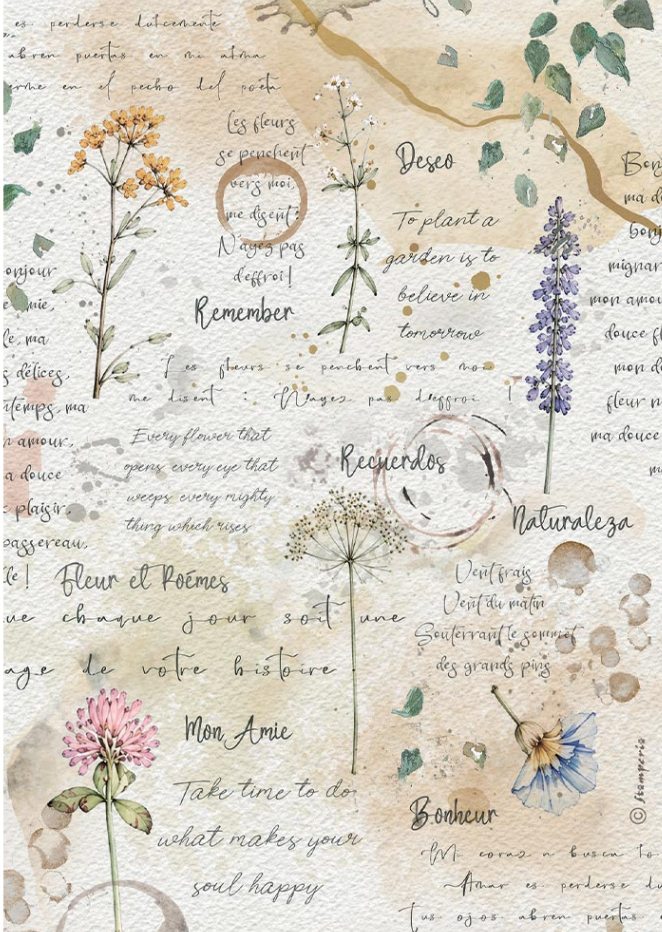 es perderse dulcemente
abren puertas en mi alma
erme en el pecho del poeta
Les fleurs
se penchent
vers moi,
me disent:
N'ayez pas
d'effroi!
Remember
Deseo
To plant a
garden is to
believe in
tomorrow
Bon
ma d
bonj
mignar
mon amou
douce fl
mon d
fleur n
ma douce
m
onjour
e mie,
le, ma
s délices,
ntemps, ma
n amour,
a douce
plaisir,
passereau,
le!
Les fleurs se penchent vers moi
me disent : N'ayez pas d'effroi !
Every flower that
opens every eye that
weeps every mighty
thing which rises
Recuerdos
Naturaleza
Fleur et Poémes
Vent frais
Vent du matin
Souterrant le sommet
des grands pins
ue chaque jour soit une
age de votre histoire
Mon Amie
Take time to do
what makes your
soul happy
Bonheur
© Stamperia
Mi corazón busca lo
Amar es perderse du
Tus ojos abren puertas e